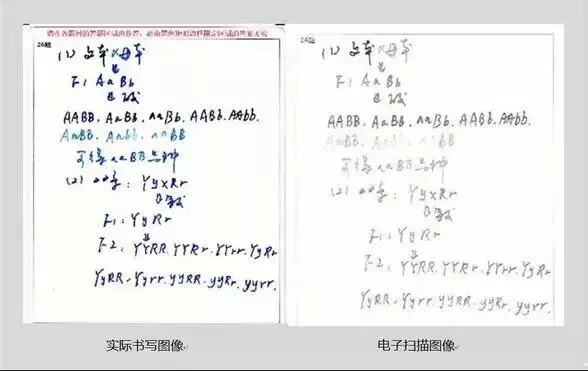 请在各题目的答题区域内作答，超出黑色矩形边框限定区域的答案无效
26题
(1) 父本×母本
F1 AaBb
AABB. AaBB. aaBb. AABb. AAbb.
AaBB. Aabb. aaBB
可得 aaBB 品种
(2) 亲本: Yy×Rr
F1: YyRr
F2: YYRR. YYRr. YYrr. YyRr
YyRR. Yyrr. yyRR. yyRr. yyrr.
26题
(1) 父本×母本
F1 AaBb
AABB. AaBB. aaBb. AABb. AAbb.
AaBB. Aabb. aaBB
可得 aaBB 品种
(2) 亲本: Yy×Rr
F1: YyRr
F2: YYRR. YYRr. YYrr. YyRr
YyRR. Yyrr. yyRR. yyRr. yyrr.
实际书写图像
电子扫描图像